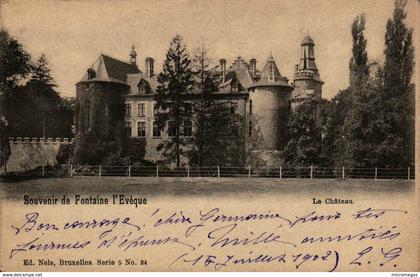 Souvenir de Fontaine l'Evêque
Le Château.
Bon courage, chère Germaine, pour tes
journées d'épreuve. Mille amitiés
Ed. Nels, Bruxelles. Serie 5 No. 24
15 Juillet 1902 L. G.
www.delcampe.net